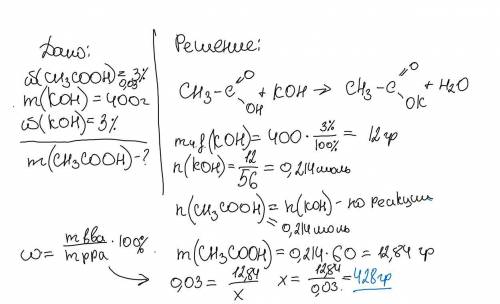 Дано:
ω(CH3COOH)=3%
0,03
m(KOH)=400г
ω(KOH)=3%
m(CH3COOH)-?
ω = m вва / m рра · 100%
Решение:
CH3-C O OH + KOH → CH3-C O OK + H2O
m чв(KOH)=400 · 3% / 100% = 12 гр
n(KOH)= 12 / 56 = 0,214 моль
n(CH3COOH)= n(KOH) - по реакции
= 0,214 моль
m(CH3COOH)=0,214·60=12,84 гр
0,03 = 12,84 / x x = 12,84 / 0,03 = 428 гр